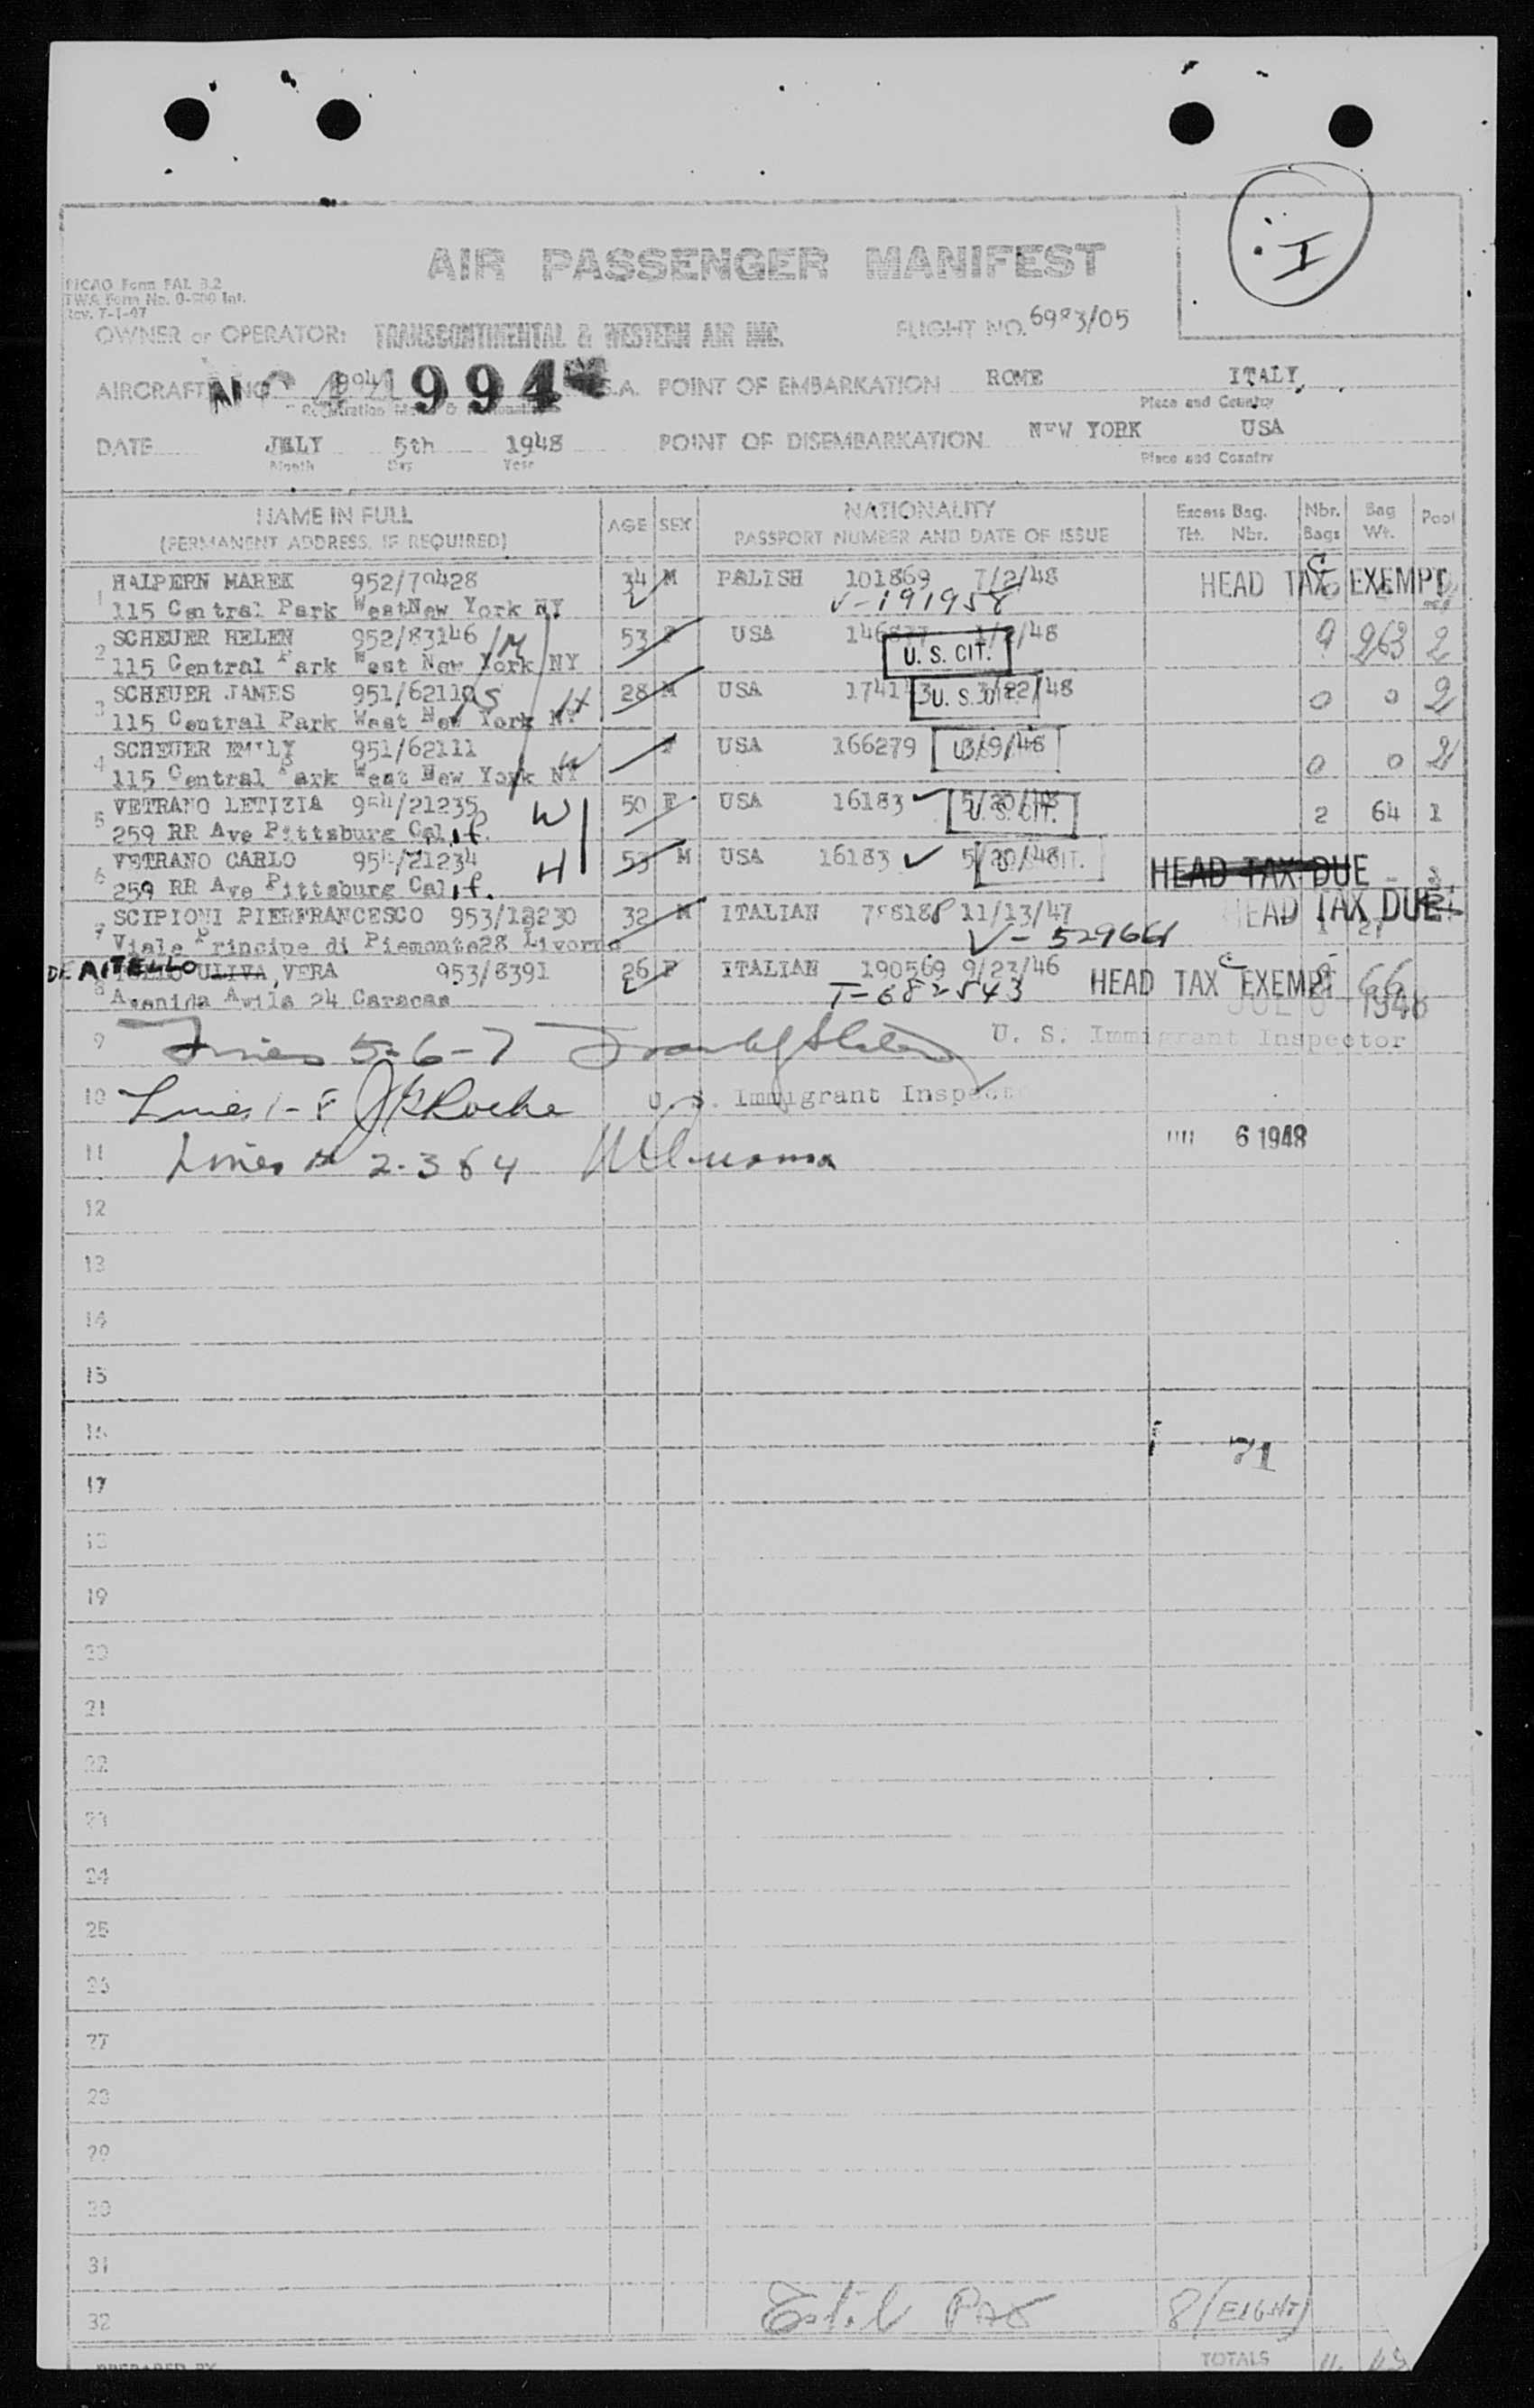 I
AIR PASSENGER MANIFEST
PICAO Form FAL 3.2
TWA Form No. 0-800 Int.
Rev. 7-1-47
OWNER or OPERATOR: TRANSCONTINENTAL & WESTERN AIR INC. FLIGHT NO. 6983/05
AIRCRAFT NO. NC 994 S.A. POINT OF EMBARKATION ROME ITALY
Place and Country
DATE JULY 5th 1948 POINT OF DISEMBARKATION NEW YORK USA
Month Day Year Place and Country
NAME IN FULL AGE SEX NATIONALITY Excess Bag. Nbr. Bag Pool
(PERMANENT ADDRESS, IF REQUIRED) PASSPORT NUMBER AND DATE OF ISSUE Tkt. Nbr. Bags Wt.
1 HALPERN MAREK 952/70428 34 M POLISH 101869 7/2/48 HEAD TAX EXEMPT
115 Central Park West New York NY V-191958
2 SCHEUER HELEN 952/83146 /M 53 F USA 1/2/48 9 263 2
115 Central Park West New York NY U. S. CIT.
3 SCHEUER JAMES 951/62110 S H 28 M USA /48 0 0 2
115 Central Park West New York NY U. S. CIT.
4 SCHEUER EMILY 951/62111 W F USA 166279 3/9/48 0 0 2
115 Central Park West New York NY
5 VETRANO LETIZIA 954/21235 W 50 F USA 16183 5/20/48 2 64 1
259 RR Ave Pittsburg Calif. U. S. CIT.
6 VETRANO CARLO 954/21234 H 53 M USA 16183 5/20/48 HEAD TAX DUE
259 RR Ave Pittsburg Calif.
7 SCIPIONI PIERFRANCESCO 953/18230 32 M ITALIAN 788188 11/13/47 HEAD TAX DUE
Viale Principe di Piemonte28 Livorno V-529661 1 27
8 DE AITELLO ULIVA, VERA 953/8391 26 F ITALIAN 190569 9/23/46 HEAD TAX EXEMPT 66
Avenida Avila 24 Caracas T-682543 JUL 6 1948
9 Lines 5-6-7 U. S. Immigrant Inspector
10 Lines 1-8 J Roche U. S. Immigrant Inspector
11 Lines 2-3 & 4 6 1948
12
13
14
15
16
71
17
18
19
20
21
22
23
24
25
26
27
28
29
30
31
32 Total Pax 8 (EIGHT)
PREPARED BY TOTALS